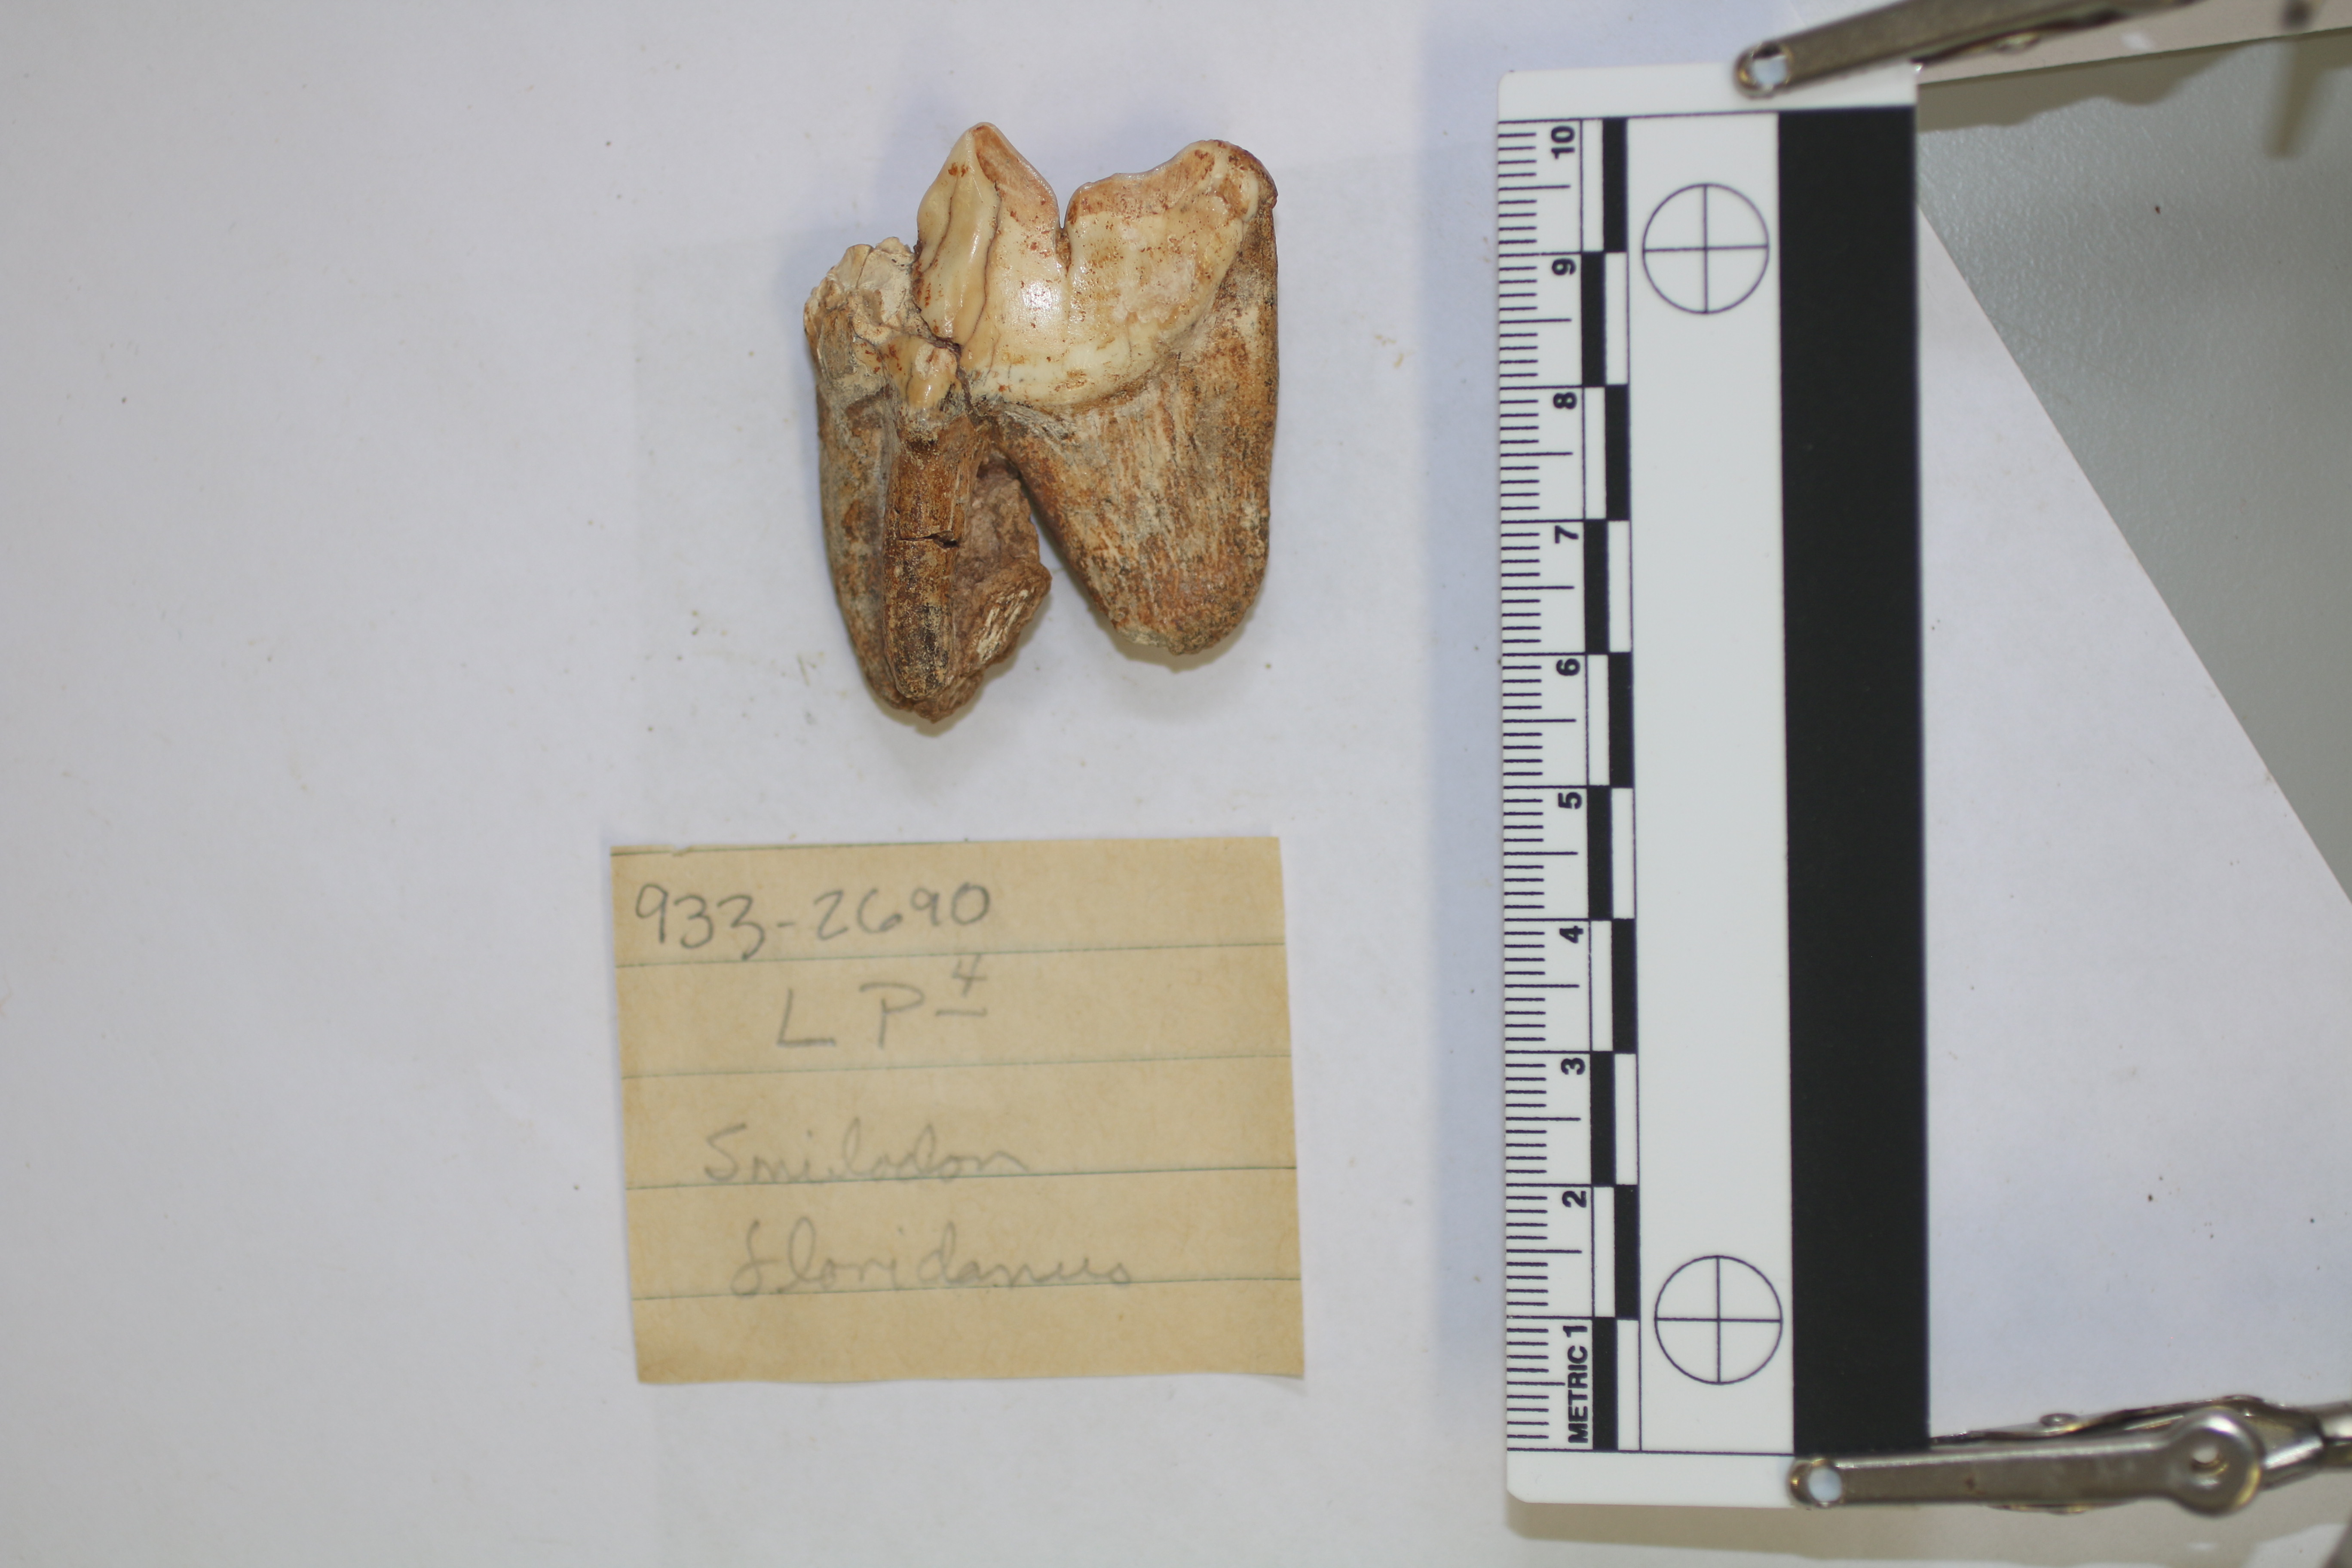 933-2690
L P4
Smilodon
floridanus
METRIC 1 2 3 4 5 6 7 8 9 10